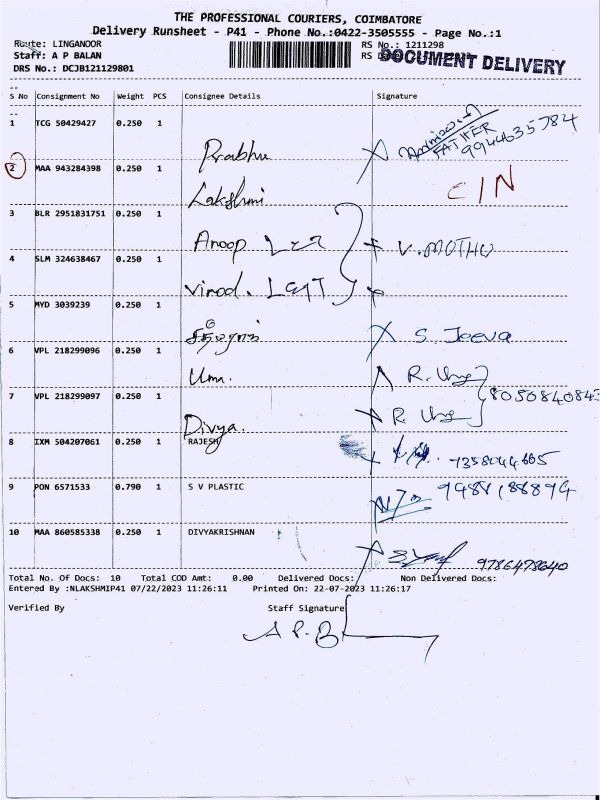 THE PROFESSIONAL COURIERS, COIMBATORE
Delivery Runsheet - P41 - Phone No.:0422-3505555 - Page No.:1
Route: LINGANOOR RS No.: 1211298
Staff: A P BALAN RS DOCUMENT DELIVERY
DRS No.: DCJB121129801
S No Consignment No Weight PCS Consignee Details Signature
1 TCG 50429427 0.250 1 Prabhu FATHER 9944635784
2 MAA 943284398 0.250 1 Lakshmi C/N
3 BLR 2951831751 0.250 1 Anoop V. MOTHU
4 SLM 324638467 0.250 1 Vinod.
5 MYD 3039239 0.250 1 S. Jeeva
6 VPL 218299096 0.250 1 Uma. R.
7 VPL 218299097 0.250 1 Divya. R. 8050840843
8 IXM 504207061 0.250 1 RAJESH 7358044665
9 PON 6571533 0.790 1 S V PLASTIC
10 MAA 860585338 0.250 1 DIVYAKRISHNAN 9786478640
Total No. Of Docs: 10 Total COD Amt: 0.00 Delivered Docs: Non Delivered Docs:
Entered By :NLAKSHMIP41 07/22/2023 11:26:11 Printed On: 22-07-2023 11:26:17
Verified By Staff Signature
A P. B